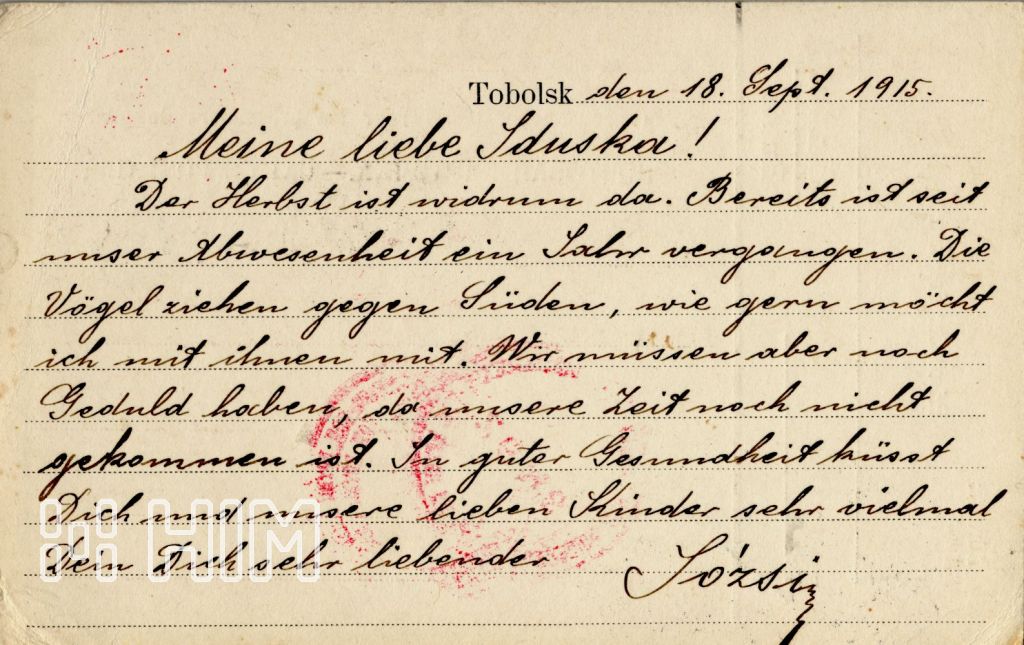 Tobolsk den 18. Sept. 1915.
Meine liebe Iduska!
Der Herbst ist widrum da. Bereits ist seit
unser Abwesenheit ein Jahr vergangen. Die
Vögel ziehen gegen Süden, wie gern möcht
ich mit ihnen mit. Wir müssen aber noch
Geduld haben, da unsere Zeit noch nicht
gekommen ist. In guter Gesundheit küsst
Dich und unsere lieben Kinder sehr vielmal
Dein Dich sehr liebender Józsi
HIM